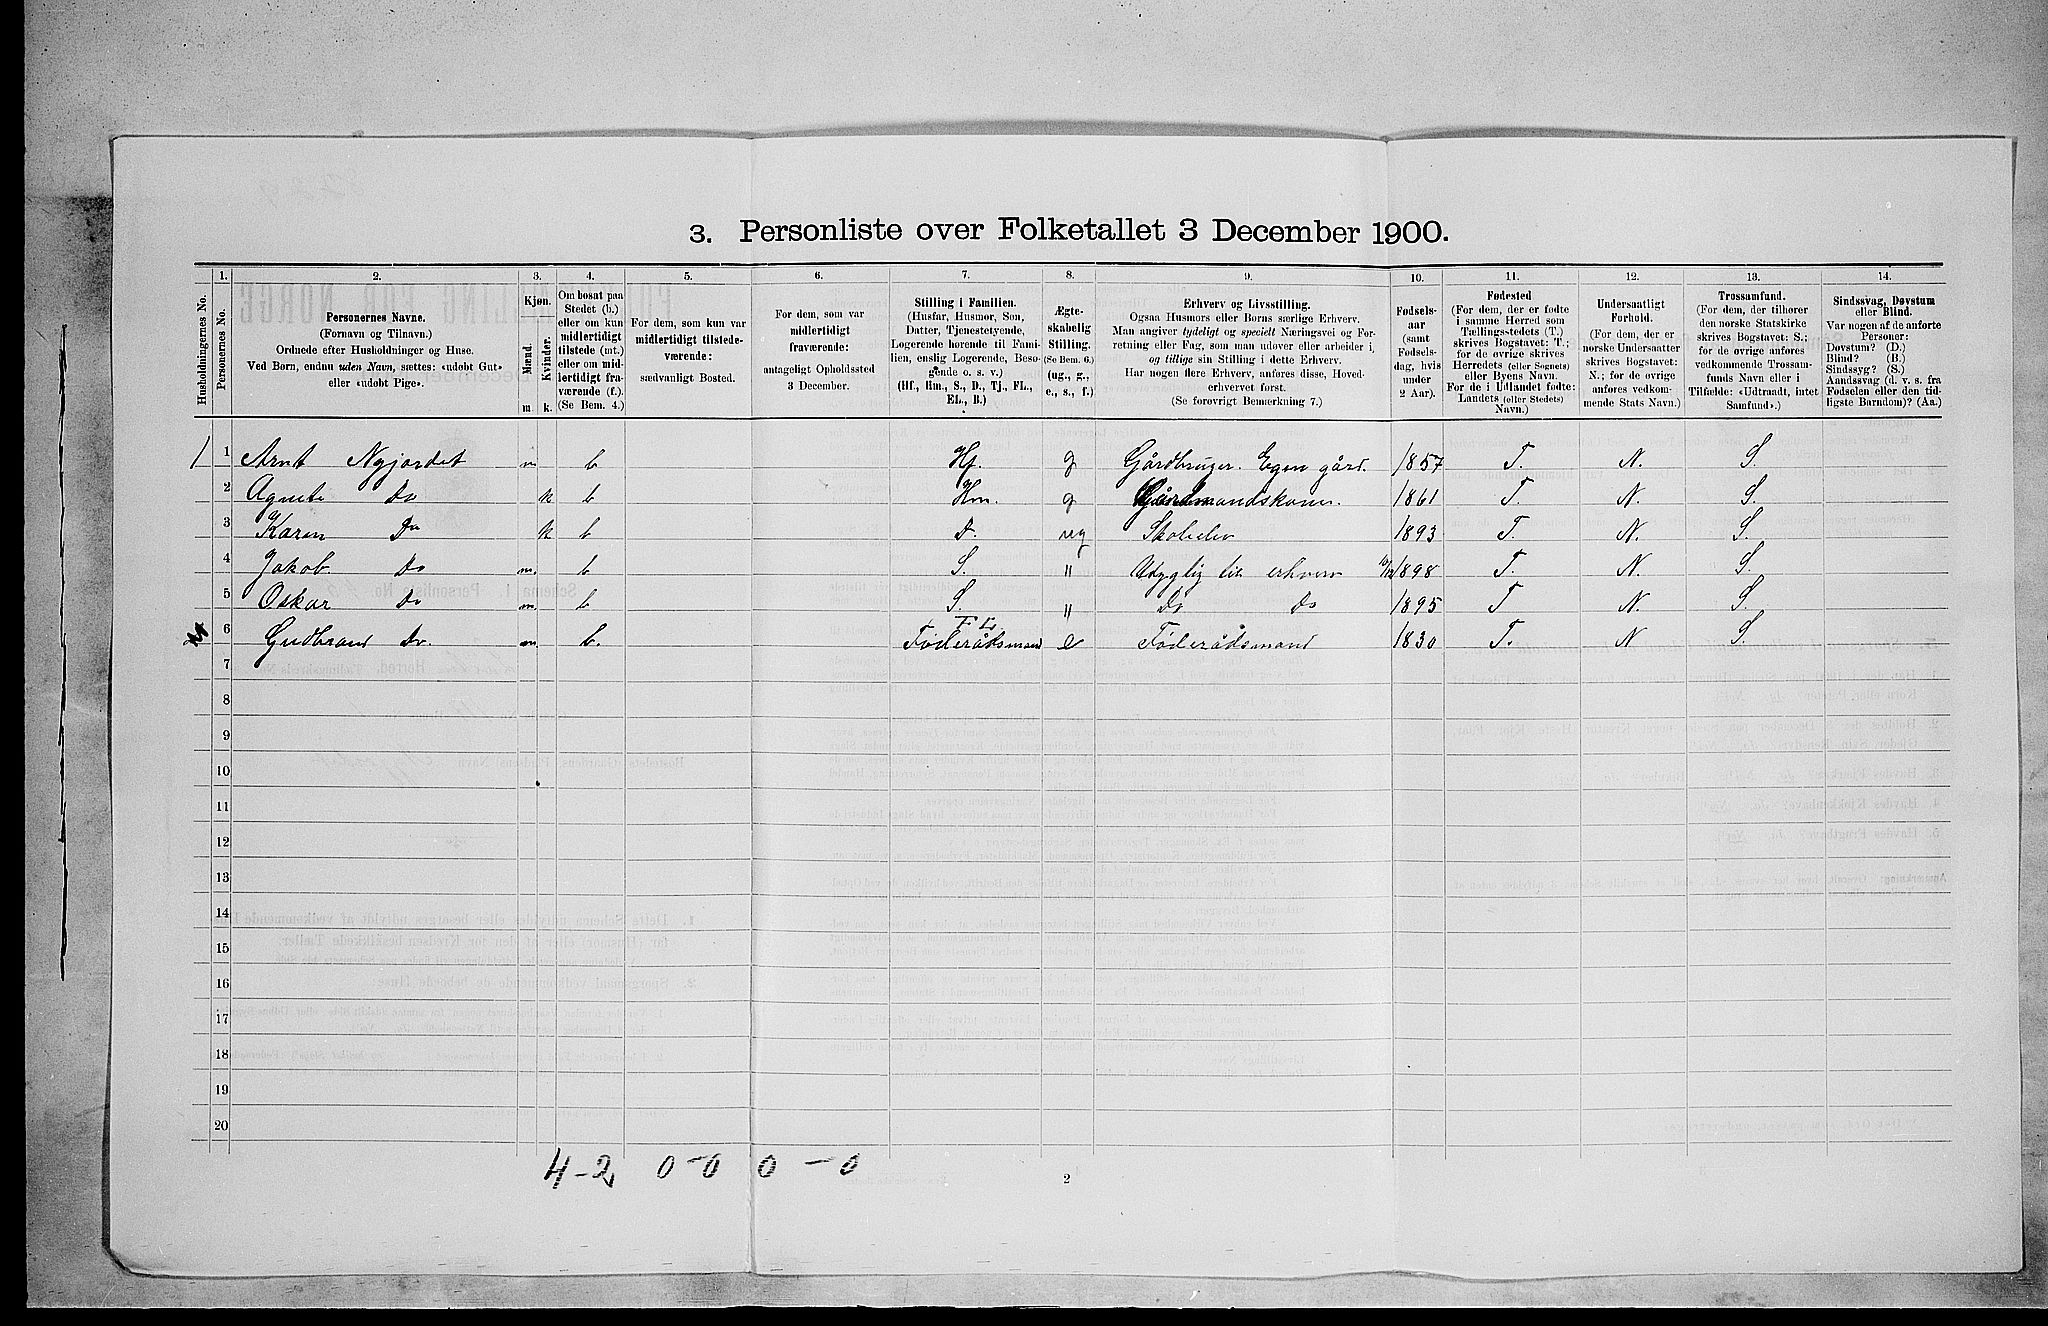 3. Personliste over Folketallet 3 December 1900.
1. 2. 3. 4. 5. 6. 7. 8. 9. 10. 11. 12. 13. 14.
Husholdningernes No.
Personernes No.
Personernes Navne.
(Fornavn og Tilnavn.)
Ordnede efter Husholdninger og Huse.
Ved Børn, endnu uden Navn, sættes: «udøbt Gut»
eller «udøbt Pige».
Kjøn.
Mænd.
Kvinder.
m. k.
Om bosat paa
Stedet (b.)
eller om kun
midlertidigt
tilstede (mt.)
eller om mid-
lertidigt fra-
værende (f.).
(Se Bem. 4.)
For dem, som kun var
midlertidigt tilstede-
værende:
sædvanligt Bosted.
For dem, som var
midlertidigt
fraværende:
antageligt Opholdssted
3 December.
Stilling i Familien.
(Husfar, Husmor, Søn,
Datter, Tjenestetyende,
Logerende hørende til Fami-
lien, enslig Logerende, Besø-
gende o. s. v.)
(Hf., Hm., S., D., Tj., FL.,
EL., B.)
Ægte-
skabelig
Stilling.
(Se Bem. 6.)
(ug., g.,
e., s., f.)
Erhverv og Livsstilling.
Ogsaa Husmors eller Børns særlige Erhverv.
Man angiver tydeligt og specielt Næringsvei og For-
retning eller Fag, som man udøver eller arbeider i,
og tillige sin Stilling i dette Erhverv.
Har nogen flere Erhverv, anføres disse, Hoved-
erhvervet først.
(Se forøvrigt Bemærkning 7.)
Fødsels-
aar
(samt
Fødsels-
dag, hvis
under
2 Aar).
Fødested
(For dem, der er fødte
i samme Herred som
Tællingsstedets (T.)
skrives Bogstavet: T.;
for de øvrige skrives
Herredets (eller Sognets)
eller Byens Navn.
For de i Udlandet fødte:
Landets (eller Stedets)
Navn.)
Undersaatligt
Forhold.
(For dem, der er
norske Undersaatter
skrives Bogstavet:
N.; for de øvrige
anføres vedkom-
mende Stats Navn.)
Trossamfund.
(For dem, der tilhører
den norske Statskirke
skrives Bogstavet: S.;
for de øvrige anføres
vedkommende Trossam-
funds Navn eller i
Tilfælde: «Udtraadt, intet
Samfund».)
Sindssvag, Døvstum
eller Blind.
Var nogen af de anførte
Personer:
Døvstum? (D.)
Blind? (B.)
Sindssyg? (S.)
Aandssvag (d. v. s. fra
Fødselen eller den tid-
ligste Barndom)? (Aa.)
1 1 Arnt Nyjordet m b Hf. g Gårdbruger. Egen gård. 1857 T. N. S.
2 Agnete Do k b Hm. g Gårdmandskone. 1861 T. N. S.
3 Karen Do k b D. ug Skoleelev 1893 T. N. S.
4 Jakob Do m. b S. " til erhverv 10/12 1898 T. N. S.
5 Oskar Do m. b S. " Do Do 1895 T N. S.
FL.
6 Gudbrand Do. m. b. Føderådsmand e Føderådsmand 1830 T. N S.
7
8
9
10
11
12
13
14
15
16
17
18
19
20
4-2 0-0 0-0
2